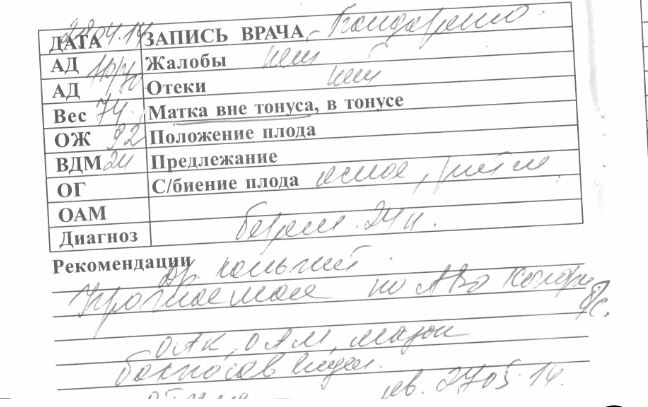 ДАТА 28.04.14 ЗАПИСЬ ВРАЧА Бондаренко
АД 110/70 Жалобы нет
АД Отеки нет
Вес 74 Матка вне тонуса, в тонусе
ОЖ 92 Положение плода
ВДМ 24 Предлежание
ОГ С/биение плода ясное, ритм.
ОАМ
Диагноз берем. 24 н.
Рекомендации
кальций
по АВО
ОАК, ОАМ, мазок
бакпосев
яв. 27.05.14.